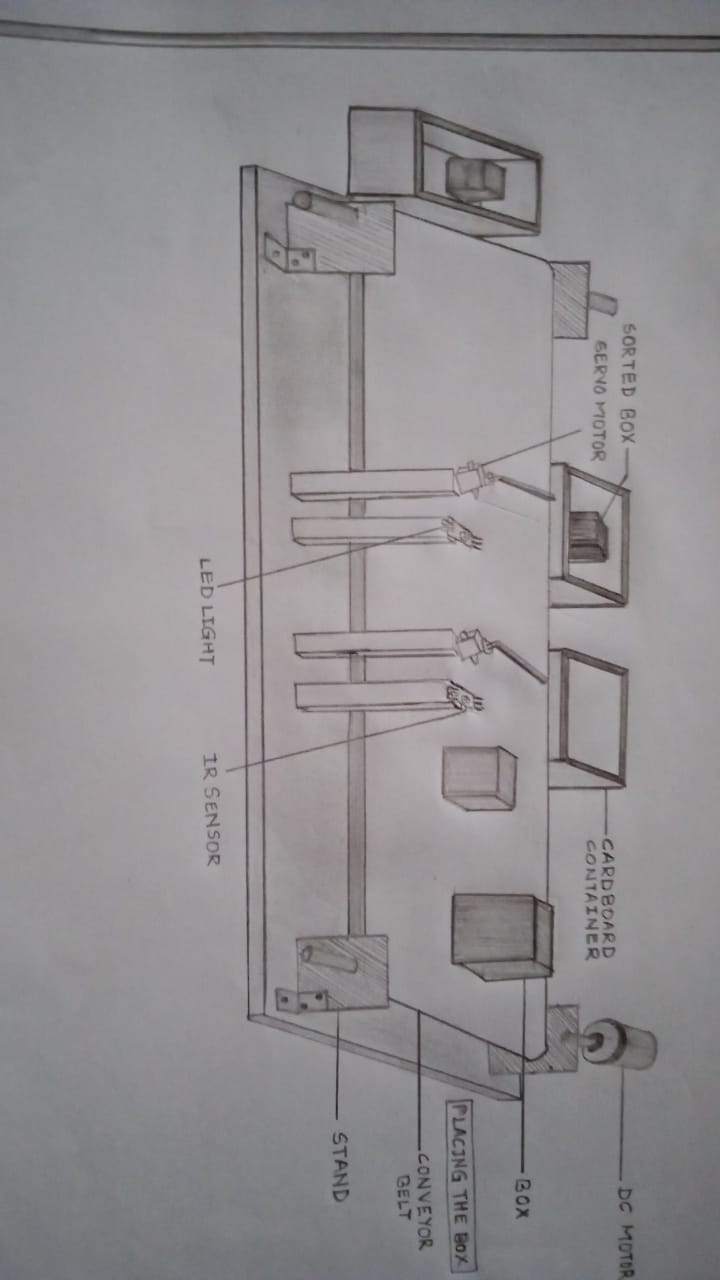 SORTED BOX
SERVO MOTOR
CARDBOARD
CONTAINER
DC MOTOR
BOX
PLACING THE BOX
CONVEYOR
BELT
STAND
LED LIGHT
IR SENSOR